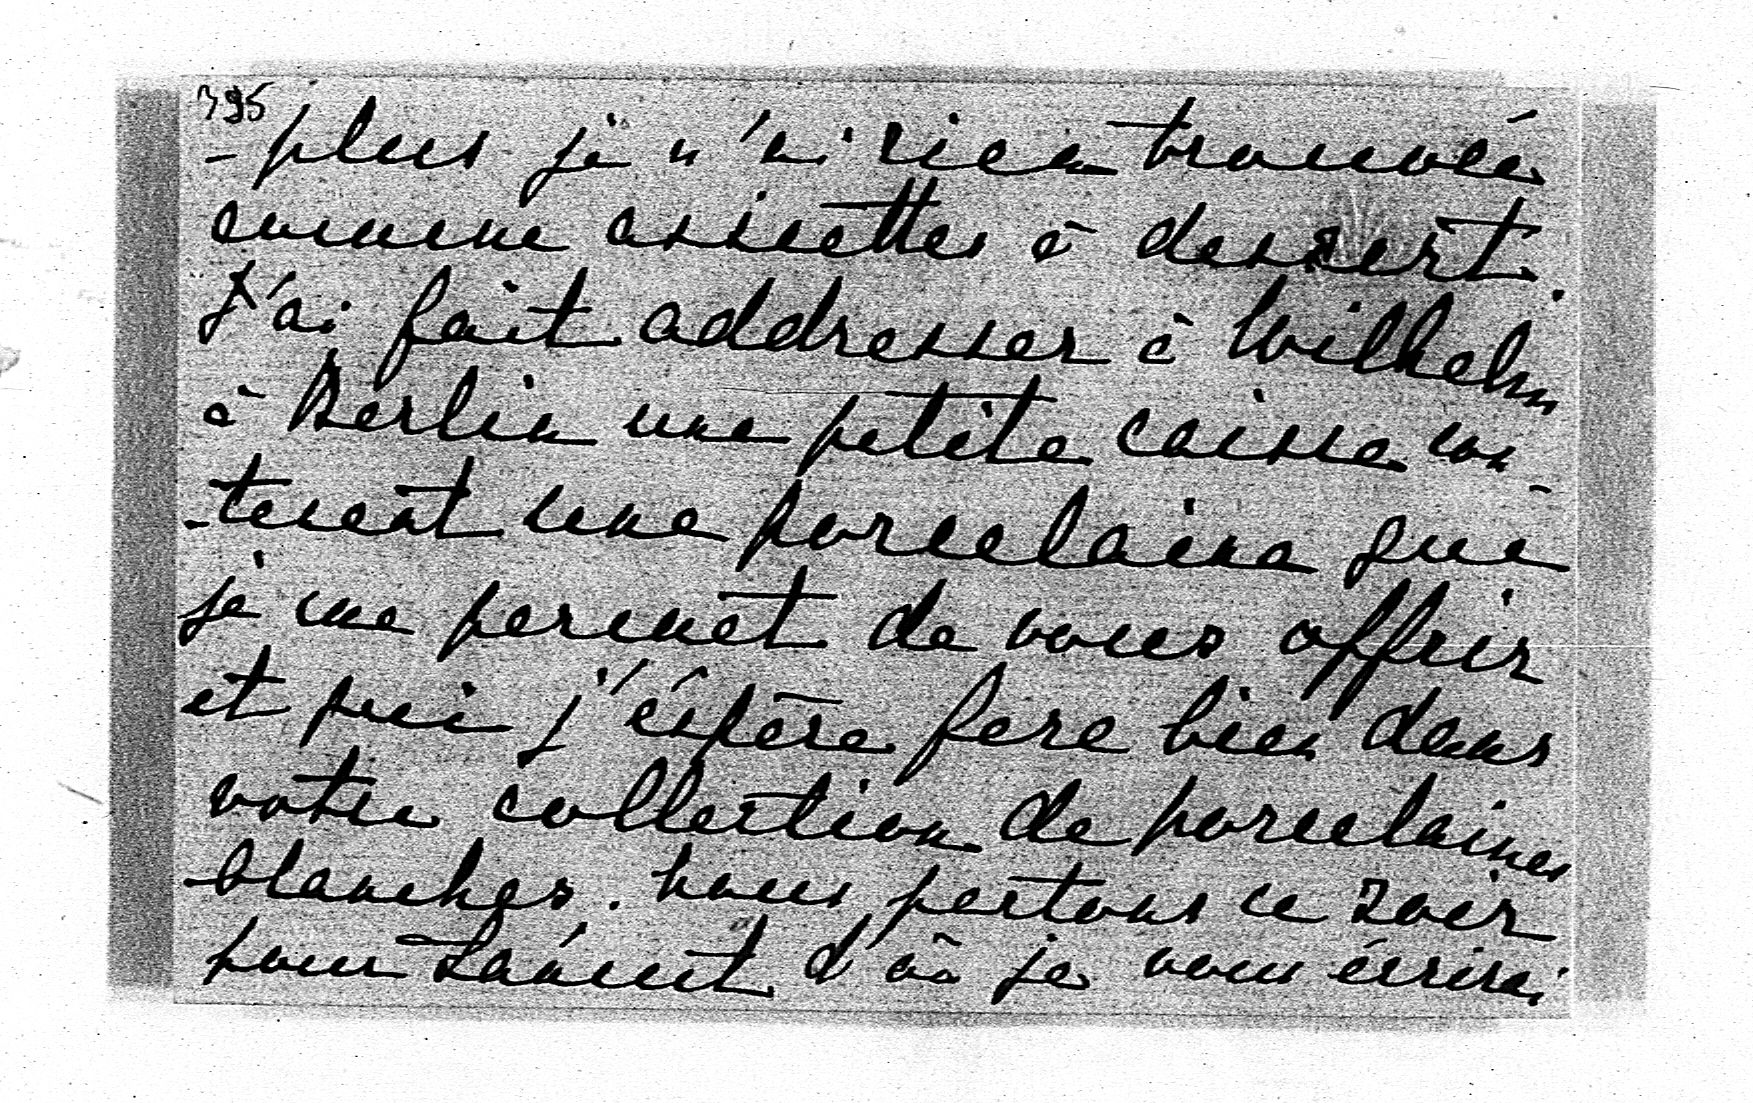 395
- plus je n'ai rien trouvée
comme assiettes à dessert.
J'ai fait addresser à Wilhelm
à Berlin une petite caisse con-
-tenant une porcelaine que
je me permet de vous offrir
et qui j'éspère fera bien dans
votre collection de porcelaines
blanches. nous partons ce soir
pour d'où je vous écrirai